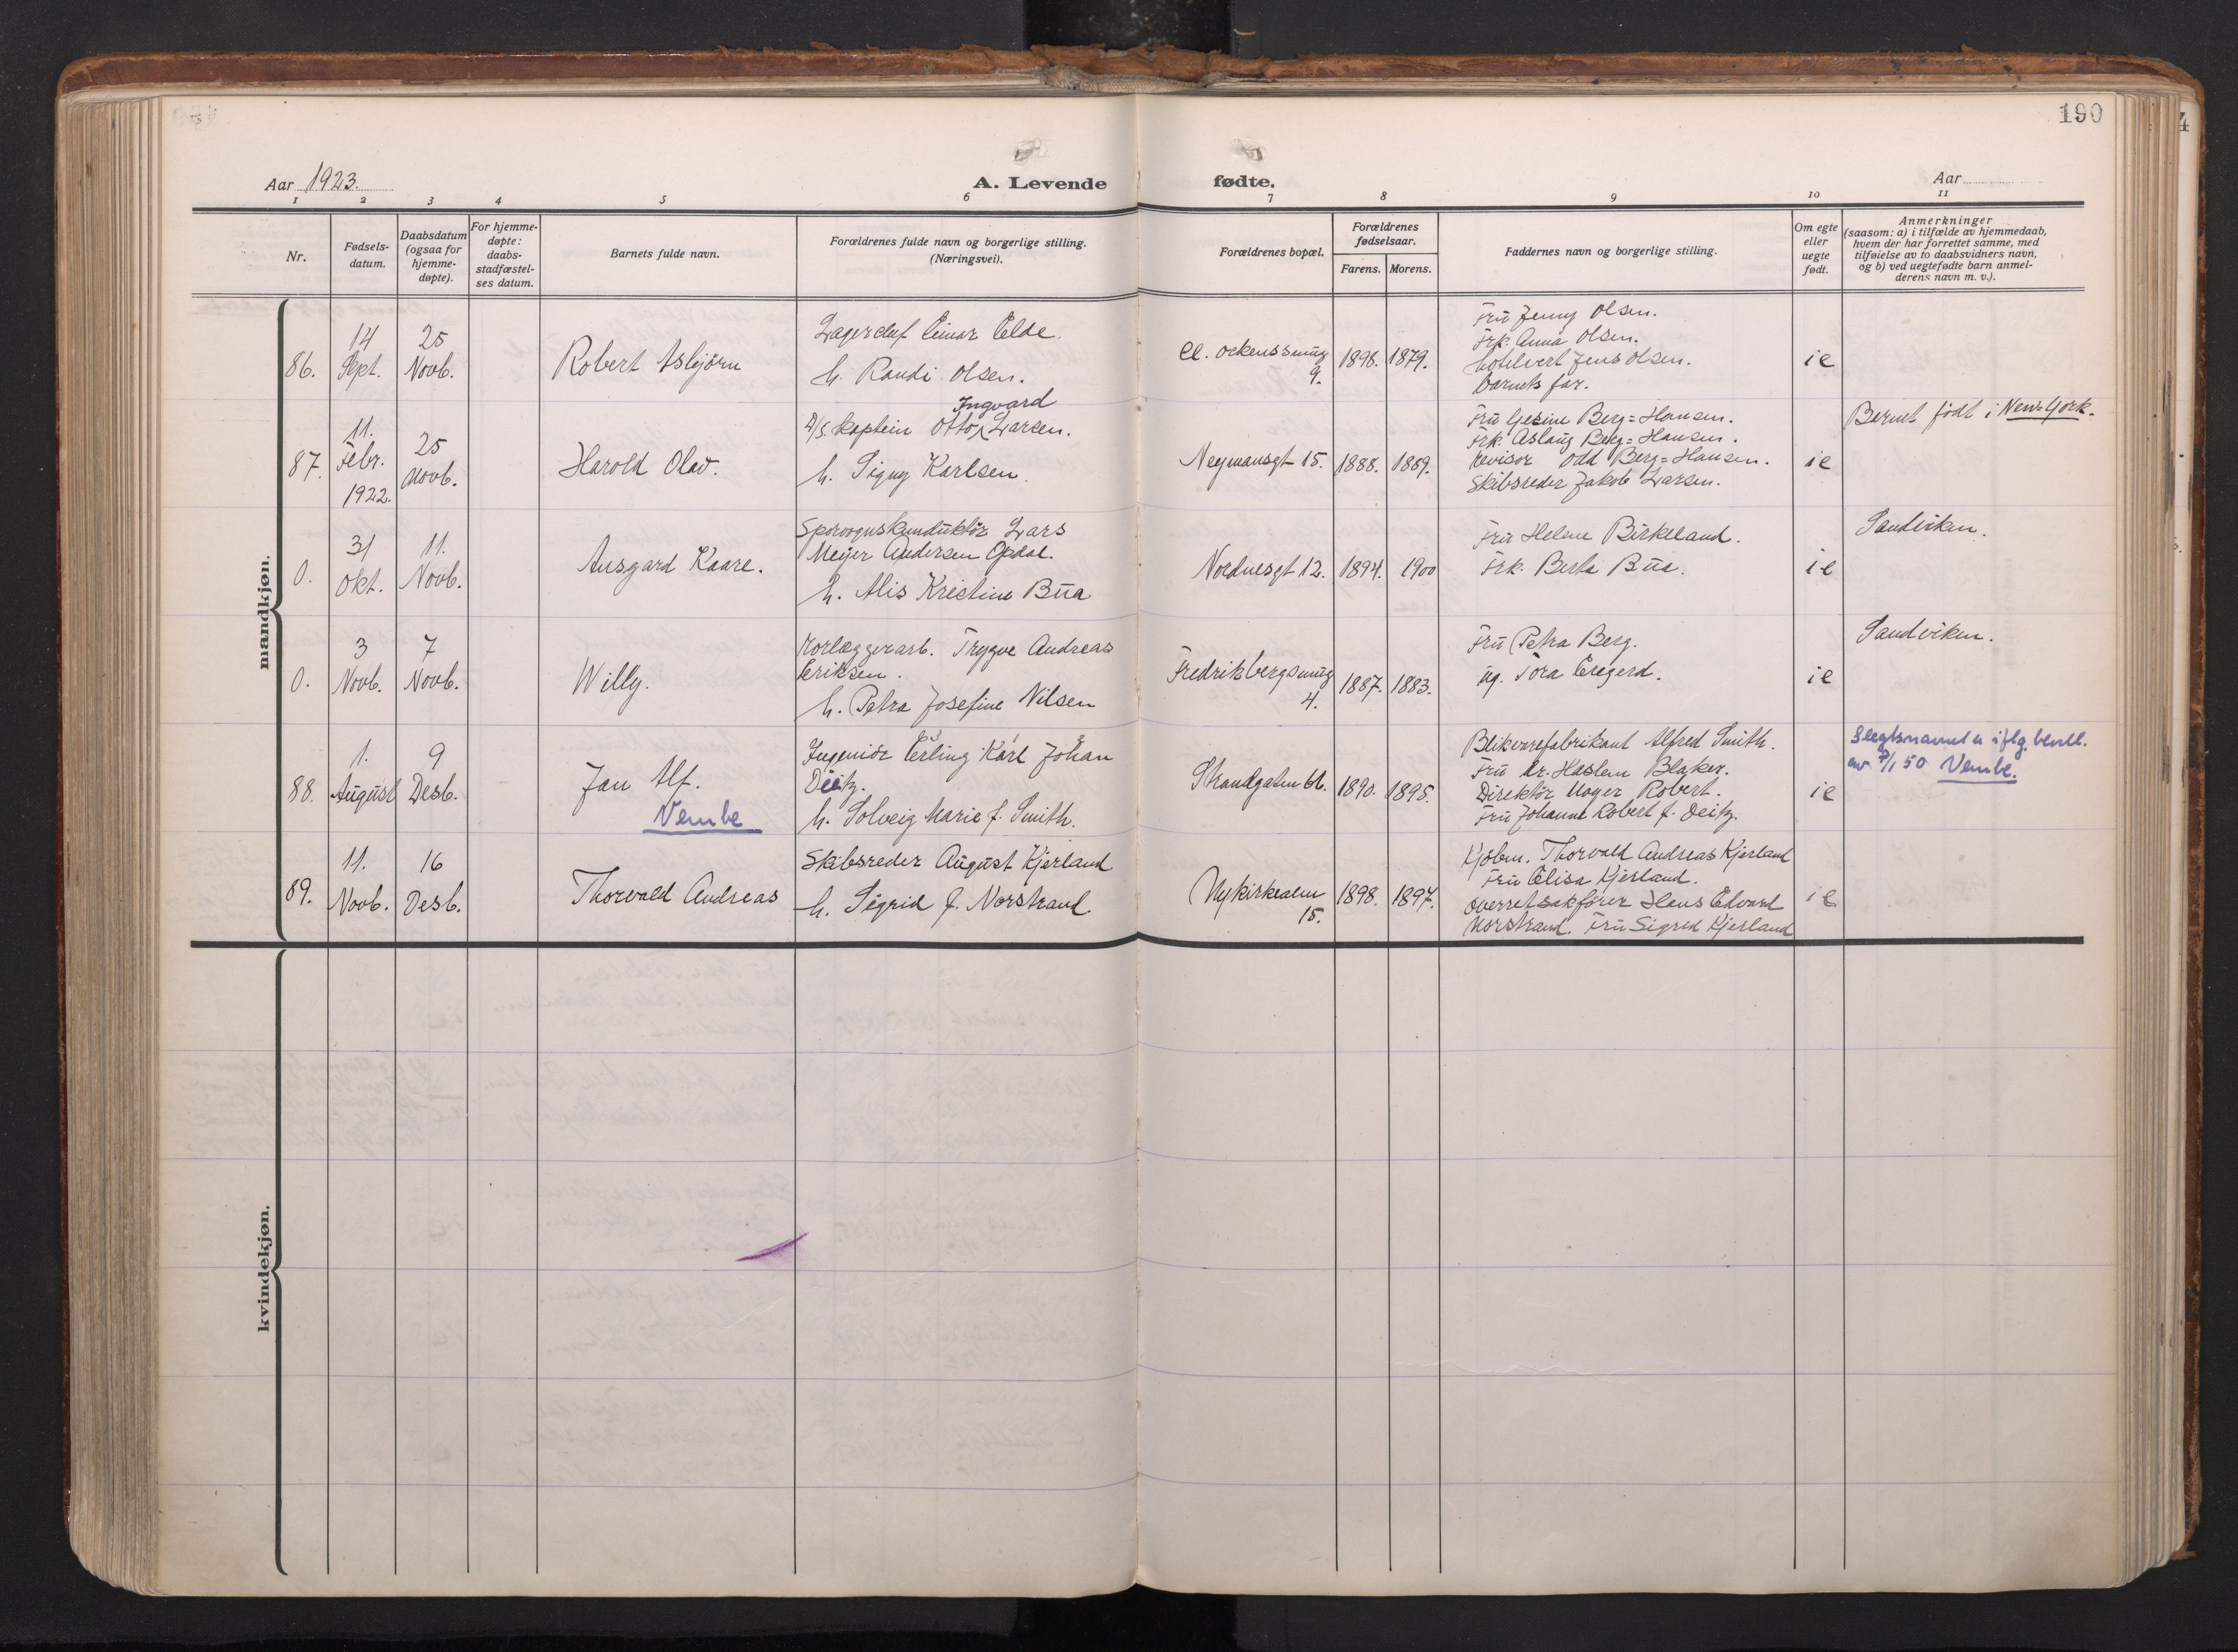 190
Aar 1923.
A. Levende fødte.
Aar
1 2 3 4 5 6 7 8 9 10 11
Nr.
Fødsels-
datum.
Daabsdatum
(ogsaa for
hjemme-
døpte).
For hjemme-
døpte:
daabs-
stadfæstel-
ses datum.
Barnets fulde navn.
Forældrenes fulde navn og borgerlige stilling.
(Næringsvei).
Forældrenes bopæl.
Forældrenes
fødselsaar.
Farens. Morens.
Faddernes navn og borgerlige stilling.
Om egte
eller
uegte
født.
Anmerkninger
(saasom: a) i tilfælde av hjemmedaab,
hvem der har forrettet samme, med
tilføielse av to daabsvidners navn,
og b) ved uegtefødte barn anmel-
derens navn m. v.).
mandkjøn.
86.
14
Sept.
25
Novb.
Robert Asbjörn
Lagerchef Einar Elde.
h. Randi Olsen.
Cl. Ockenssmug
9.
1898.
1879.
Fru Jenny Olsen.
Frk. Anna Olsen.
Hotelvert Jens Olsen.
Barnets far.
ie
87.
11.
Febr.
1922.
25
Novb.
Harold Olav.
Ingvard
D/S. kaptein Otto Larsen.
h. Signy Karlsen.
Neymansgt 15.
1888.
1889.
Fru Gesine Berg=Hansen.
Frk. Aslaug Berg=Hansen.
Revisor Odd Berg=Hansen.
Skibsreder Jakob Larsen.
ie
Barnet födt i New-York.
0.
31
Okt.
11.
Novb.
Ansgard Kaare.
Sporvognskunduktör Lars
Meyer Andersen Opdal.
h. Alis Kristine Bua
Nordnesgt 12.
1894.
1900
Fru Helene Birkeland.
Frk. Berta Bua.
ie
Sandviken.
0.
3
Novb.
7
Novb.
Willy.
Rorlæggerarb. Trygve Andreas
Eriksen.
h. Petra Josefine Nilsen
Fredrikbergsmug
4.
1887.
1883.
Fru Petra Berg.
ug. Tora Eregerd.
ie
Sandviken.
88.
1.
August
9
Desb.
Jan Alf.
Vembe
Ingeniör Erling Karl Johan
Deitz.
h. Solveig Marie f. Smith.
Strandgaten 61.
1890.
1895.
Blikvarefabrikant Alfred Smith.
Fru Dr. Haslem Blaker.
Direktör Robert.
Fru Johanne Robert f. Deitz.
ie
Slegtsnavnet er iflg. bevill.
av 50 Vembe.
89.
11.
Novb.
16
Desb.
Thorvald Andreas
Skibsreder August Kjerland
h. Sigrid f. Norstrand.
Nykirkealm
15.
1898.
1897.
Kjöbm. Thorvald Andreas Kjerland
Fru Elisa Kjerland.
Overretsakförer Hans Edvard
Norstrand. Fru Sigrid Kjerland
ie
kvindekjøn.